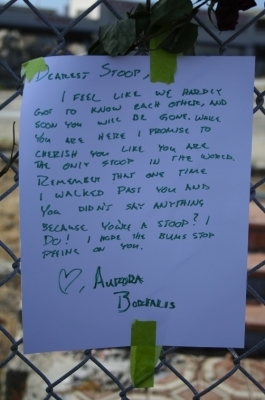 Dearest Stoop,
I feel like we hardly
got to know each other, and
soon you will be gone. While
you are here I promise to
cherish you like you are
the only stoop in the world.
Remember that one time
I walked past you and
you didn't say anything
because you're a stoop? I
do! I hope the bums stop
peeing on you.
♡, Aurora
Borealis